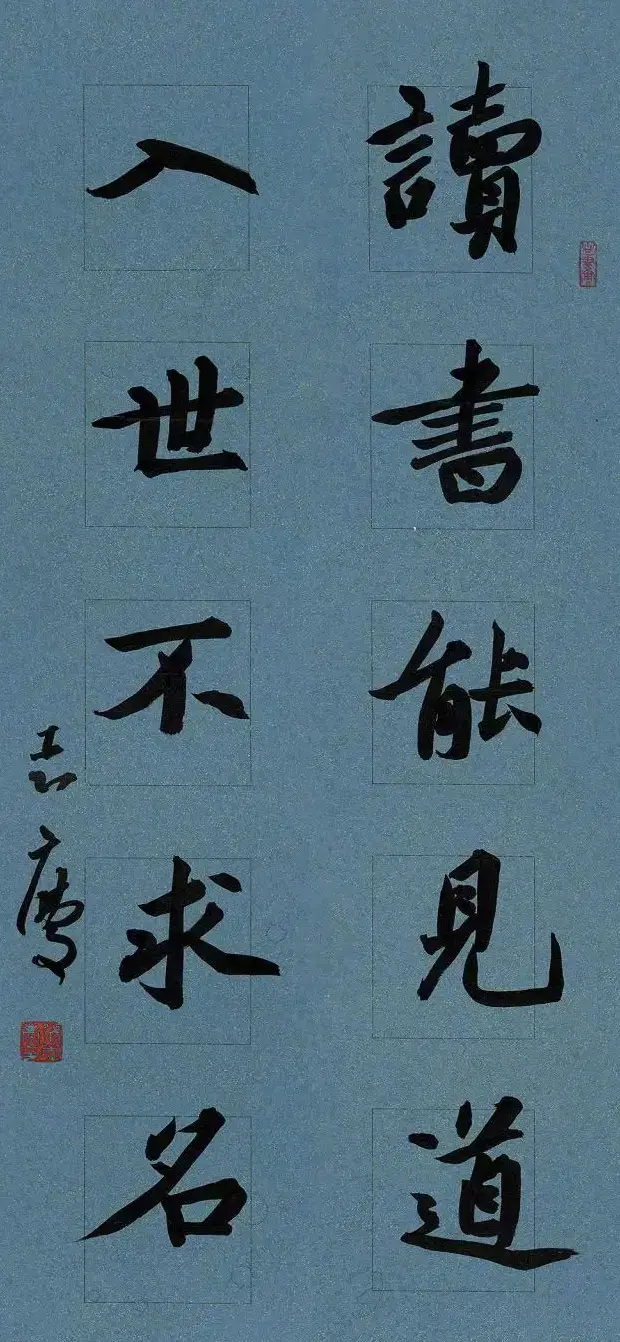 讀書能見道
入世不求名
志鹰